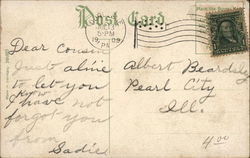 Post Card
5-PM
19 09
PA
Dear Cousin
Just a line
to let you
know
I have not
forgot you
from
Sadie
Albert Beardsley
Pearl City
Ill.
4.00